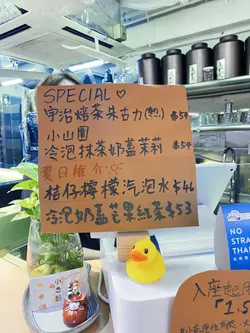 SPECIAL ♡
宇治焙茶朱古力(熱) $54
小山園
冷泡抹茶奶蓋茉莉 $54
夏日推介
桔仔檸檬汽泡水 $46
冷泡奶蓋芒果紅茶 $53
NO
STRA
THA
入座起